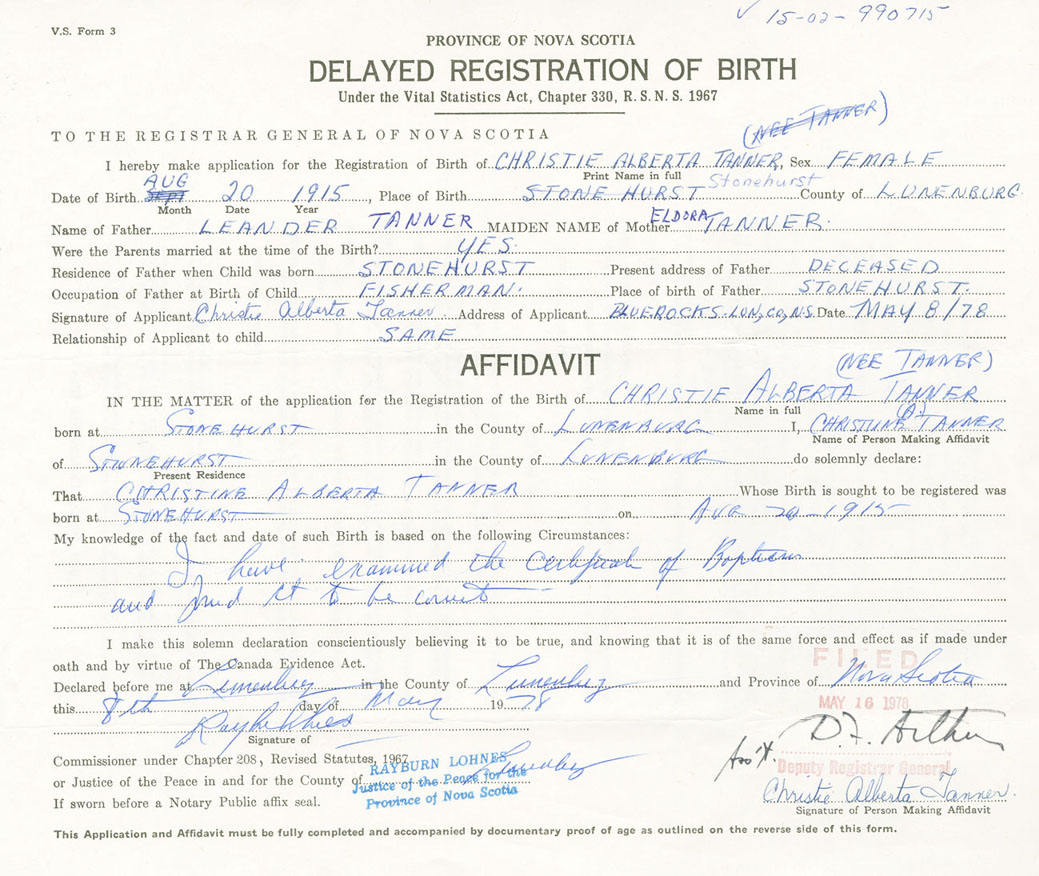 V.S. Form 3
✓ 15-02-990715
PROVINCE OF NOVA SCOTIA
DELAYED REGISTRATION OF BIRTH
Under the Vital Statistics Act, Chapter 330, R.S.N.S. 1967
(NEE TANNER)
TO THE REGISTRAR GENERAL OF NOVA SCOTIA
I hereby make application for the Registration of Birth of CHRISTIE ALBERTA TANNER, Sex FEMALE
Print Name in full
AUG Stonehurst
Date of Birth SEPT 20 1915, Place of Birth STONE HURST County of LUNENBURG
Month Date Year
Name of Father LEANDER TANNER MAIDEN NAME of Mother ELDORA TANNER.
Were the Parents married at the time of the Birth? YES.
Residence of Father when Child was born STONEHURST Present address of Father DECEASED
Occupation of Father at Birth of Child FISHERMAN. Place of birth of Father STONEHURST.
Signature of Applicant Christie Alberta Tanner Address of Applicant BLUEROCKS. LUN, CO, N.S. Date MAY 8/78
Relationship of Applicant to child SAME
AFFIDAVIT
(NEE TANNER)
IN THE MATTER of the application for the Registration of the Birth of CHRISTIE ALBERTA TANNER
Name in full
born at STONEHURST in the County of LUNENBURG I, CHRISTINE A. TANNER
Name of Person Making Affidavit
of STONEHURST in the County of LUNENBURG do solemnly declare:
Present Residence
That CHRISTINE ALBERTA TANNER Whose Birth is sought to be registered was
born at STONEHURST on AUG 20 - 1915
My knowledge of the fact and date of such Birth is based on the following Circumstances:
I have examined the certificate of Baptism
and find it to be correct
I make this solemn declaration conscientiously believing it to be true, and knowing that it is of the same force and effect as if made under
oath and by virtue of The Canada Evidence Act.
FILED
Declared before me at Lunenburg in the County of Lunenburg and Province of Nova Scotia
this 8th day of May 1978
MAY 16 1978
Signature of
Commissioner under Chapter 208, Revised Statutes, 1967
RAYBURN LOHNES
or Justice of the Peace in and for the County of Lunenburg
Justice of the Peace for the
Province of Nova Scotia
Deputy Registrar General
If sworn before a Notary Public affix seal.
Christie Alberta Tanner.
Signature of Person Making Affidavit
This Application and Affidavit must be fully completed and accompanied by documentary proof of age as outlined on the reverse side of this form.